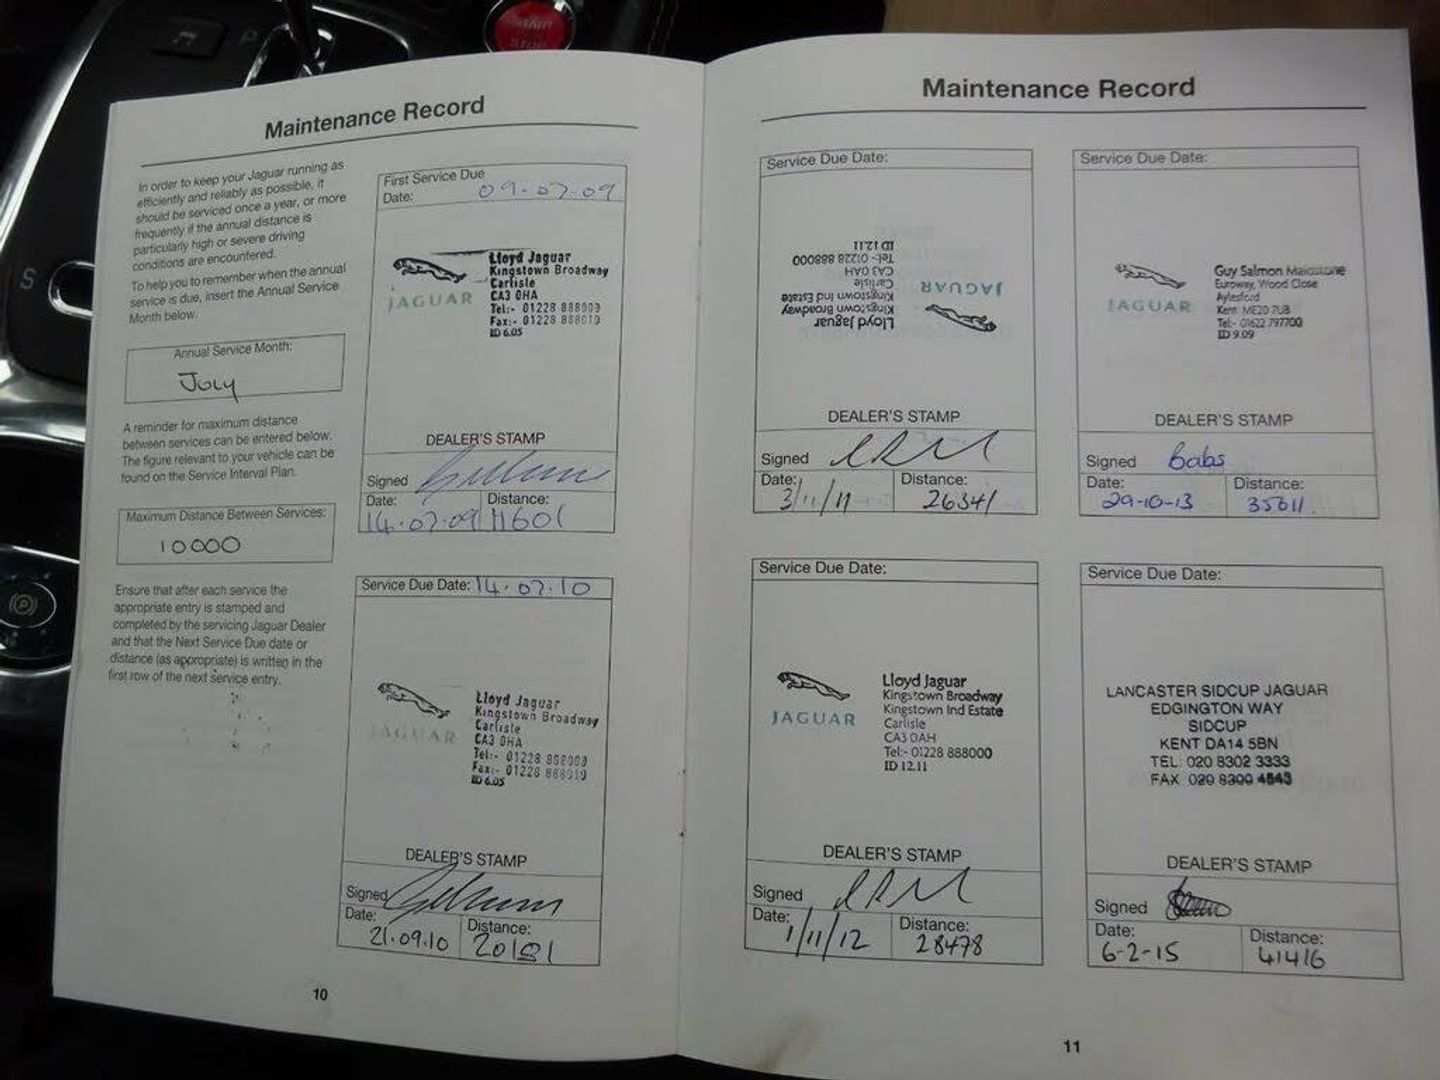 START
STOP
S
Maintenance Record
In order to keep your Jaguar running as
efficiently and reliably as possible, it
should be serviced once a year, or more
frequently if the annual distance is
particularly high or severe driving
conditions are encountered.
To help you to remember when the annual
service is due, insert the Annual Service
Month below.
Annual Service Month:
July
A reminder for maximum distance
between services can be entered below.
The figure relevant to your vehicle can be
found on the Service Interval Plan.
Maximum Distance Between Services:
10000
Ensure that after each service the
appropriate entry is stamped and
completed by the servicing Jaguar Dealer
and that the Next Service Due date or
distance (as appropriate) is written in the
first row of the next service entry.
First Service Due
Date: 09.07.09
JAGUAR
Lloyd Jaguar
Kingstown Broadway
Carlisle
CA3 0HA
Tel:- 01228 888000
Fax:- 01228 888010
ID 6.05
DEALER'S STAMP
Signed
Date: Distance:
14.07.09 11601
Service Due Date: 14.07.10
JAGUAR
Lloyd Jaguar
Kingstown Broadway
Carlisle
CA3 0HA
Tel:- 01228 888000
Fax:- 01228 888010
ID 6.05
DEALER'S STAMP
Signed
Date: Distance:
21.09.10 20151
10
Maintenance Record
Service Due Date:
JAGUAR
Lloyd Jaguar
Kingstown Broadway
Kingstown Ind Estate
Carlisle
CA3 0AH
Tel:- 01228 888000
ID 12.11
DEALER'S STAMP
Signed
Date: Distance:
3/11/11 26341
Service Due Date:
JAGUAR
Lloyd Jaguar
Kingstown Broadway
Kingstown Ind Estate
Carlisle
CA3 0AH
Tel:- 01228 888000
ID 12.11
DEALER'S STAMP
Signed
Date: Distance:
1/11/12 28478
Service Due Date:
JAGUAR
Guy Salmon Maidstone
Euroway, Wood Close
Aylesford
Kent ME20 7UB
Tel:- 01622 797700
ID 9.09
DEALER'S STAMP
Signed Babs
Date: Distance:
29-10-13 35611
Service Due Date:
LANCASTER SIDCUP JAGUAR
EDGINGTON WAY
SIDCUP
KENT DA14 5BN
TEL: 020 8302 3333
FAX 020 8300 4843
DEALER'S STAMP
Signed
Date: Distance:
6-2-15 41416
11